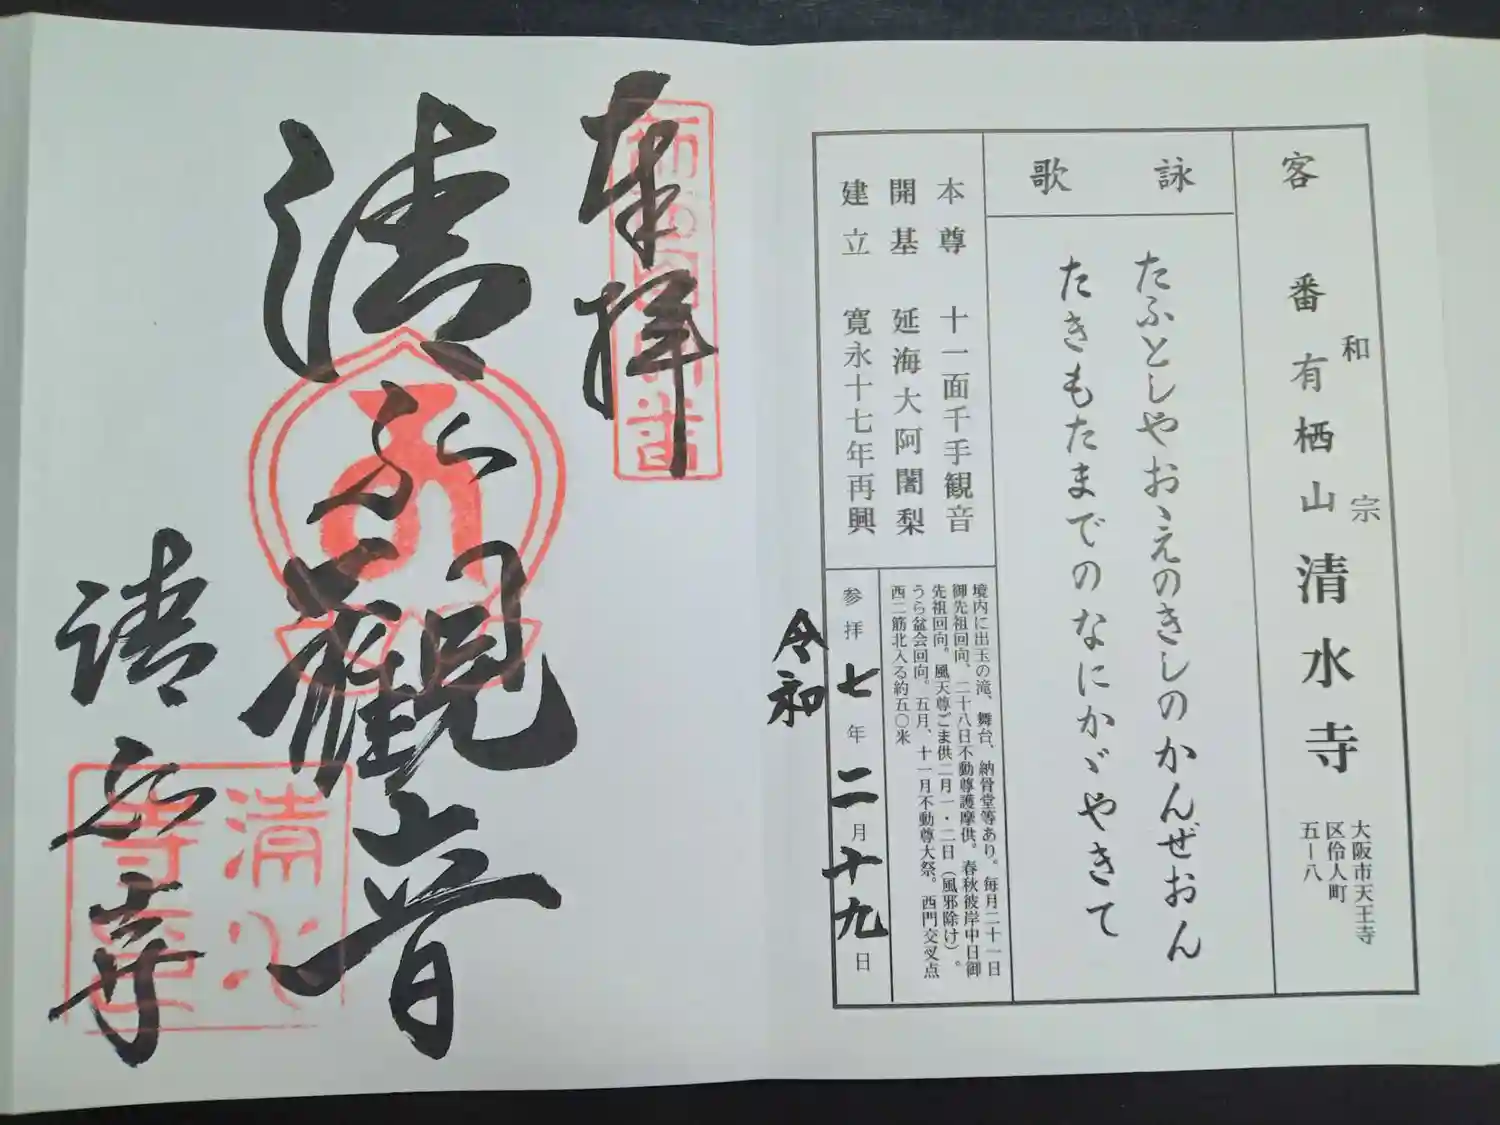 客
番
和宗
有栖山 清水寺
大阪市天王寺
区伶人町
五ー八
詠歌
たふとしやおゝえのきしのかんぜおん
たきもたまでのなにかゞやきて
本尊 十一面千手観音
開基 延海大阿闍梨
建立 寛永十七年再興
境内に出玉の滝、舞台、納骨堂等あり。毎月二十一日
御先祖回向、二十八日不動尊護摩供。春秋彼岸中日御
先祖回向。風天尊ごま供二月一・二日（風邪除け）。
うら盆会回向。五月、十一月不動尊大祭。西門交叉点
西二筋北入る約五〇米
参拝 七年 二月 十九日
令和
奉拝
清水観音
清水寺
清水
寺